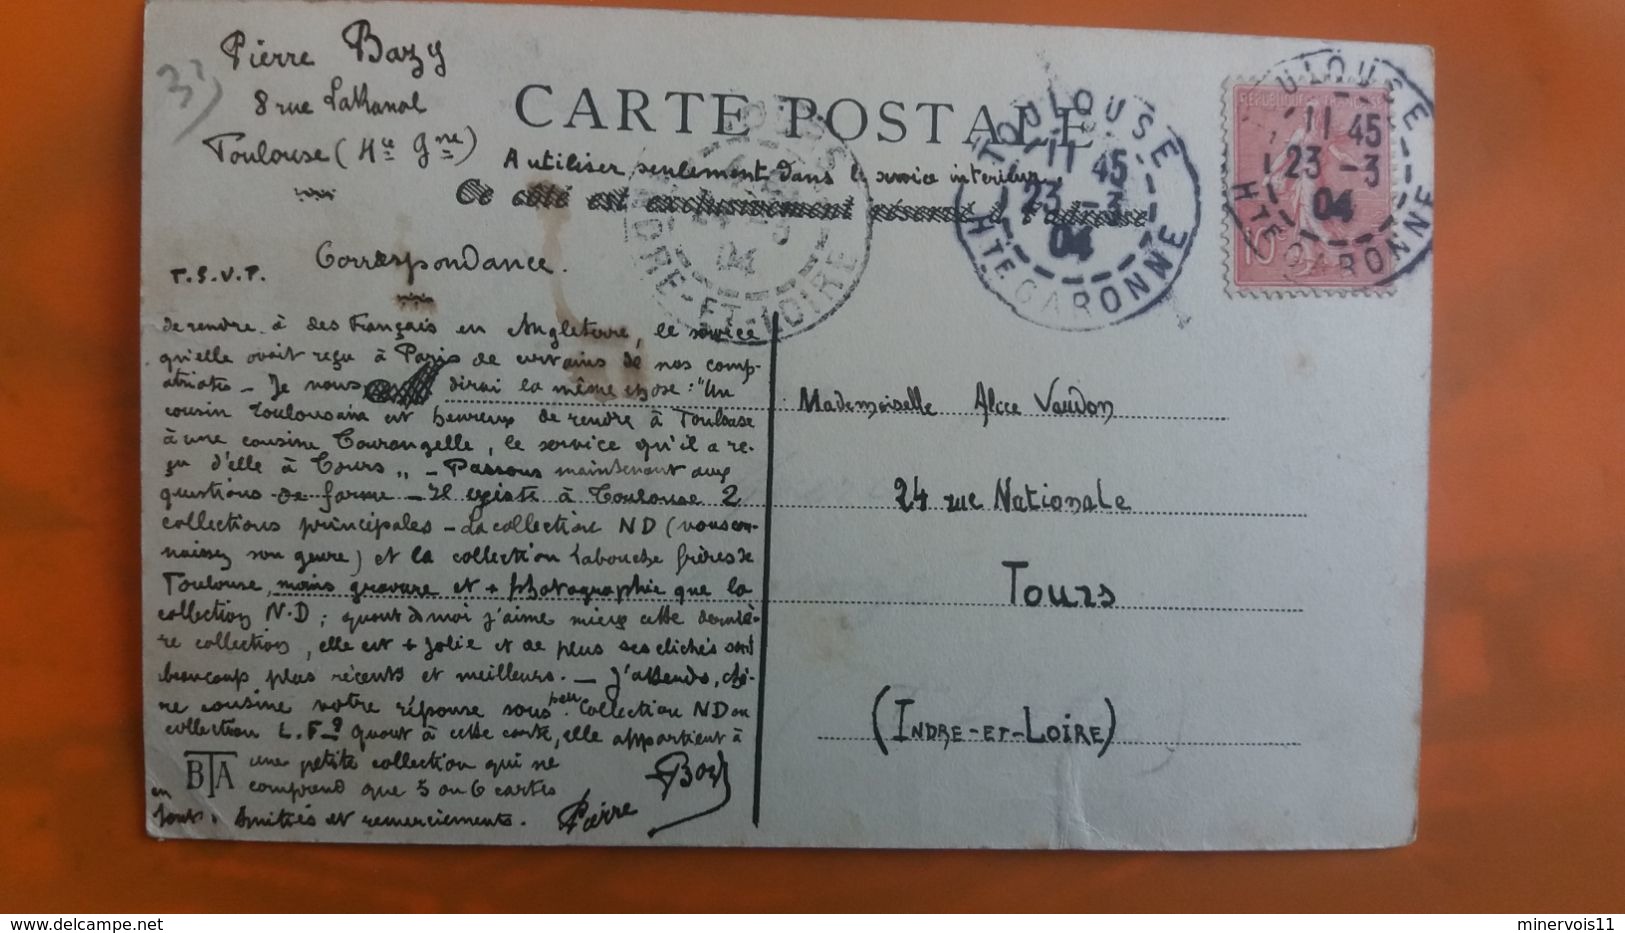 Pierre Bazy
8 rue Lakanal
Toulouse (Hte Gne)
33
CARTE POSTALE
A utiliser seulement dans le service intérieur.
Ce côté est exclusivement réservé à l'adresse
TOULOUSE
11 45
23 -3
04
HTE GARONNE
TOULOUSE
11 45
23 -3
04
HTE GARONNE
REPUBLIQUE FRANÇAISE
10c
04
INDRE-ET-LOIRE
T.S.V.P.
Correspondance.
de rendre à des Français en Angleterre, le service
qu'elle avait reçu à Paris de certains de nos comp-
atriotes - Je vous dirai la même chose : "Un
cousin Toulousain est heureux de rendre à Toulouse
à une cousine Tourangelle, le service qu'il a re-
çu d'elle à Tours ,, - Passons maintenant aux
questions de forme - Il existe à Toulouse 2
collections principales - La collection ND (vous con-
naissez son genre) et la collection Labouche frères de
Toulouse, moins gravure et + photographie que la
collection N.D ; quant à moi j'aime mieux cette derniè-
re collection, elle est + jolie et de plus ses clichés sont
beaucoup plus récents et meilleurs. - J'attends, chè-
re cousine votre réponse sous peu. Collection ND ou
collection L.F ? quant à cette carte, elle appartient à
une petite collection qui ne
comprend que 5 ou 6 cartes
en tout. Amitiés et remerciements.
Pierre Bazy
BTA
Mademoiselle Alice Vaudon
24 rue Nationale
Tours
(INDRE-ET-LOIRE)
delcampe.net
minervois11